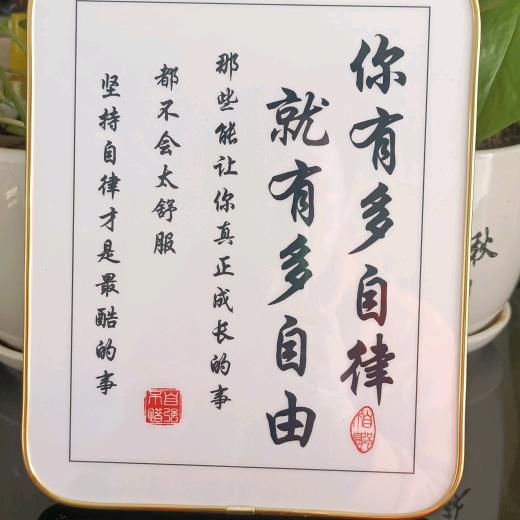 你有多自律
就有多自由
那些能让你真正成长的事
都不会太舒服
坚持自律才是最酷的事
自强不息
秋